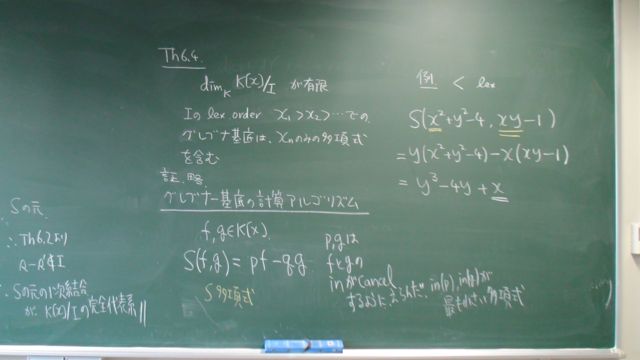 Th6.4
dim_K K[x]/I が有限
Iの lex order x₁>x₂>…での
グレブナ基底は、xₙのみの多項式
を含む
証. 略.
グレブナー基底の計算アルゴリズム
f, g ∈ K[x]
S(f,g) = pf - qg
S多項式
p, q は
f と g の
in が cancel
するように えらんだ. in(p), in(q) が
最も小さい多項式
例 < lex
S(x²+y²-4, xy-1)
= y(x²+y²-4) - x(xy-1)
= y³-4y+x
Sの元.
∴ Th6.2より
∴ Sの元の1次結合
が、K[x]/Iの完全代表系 //